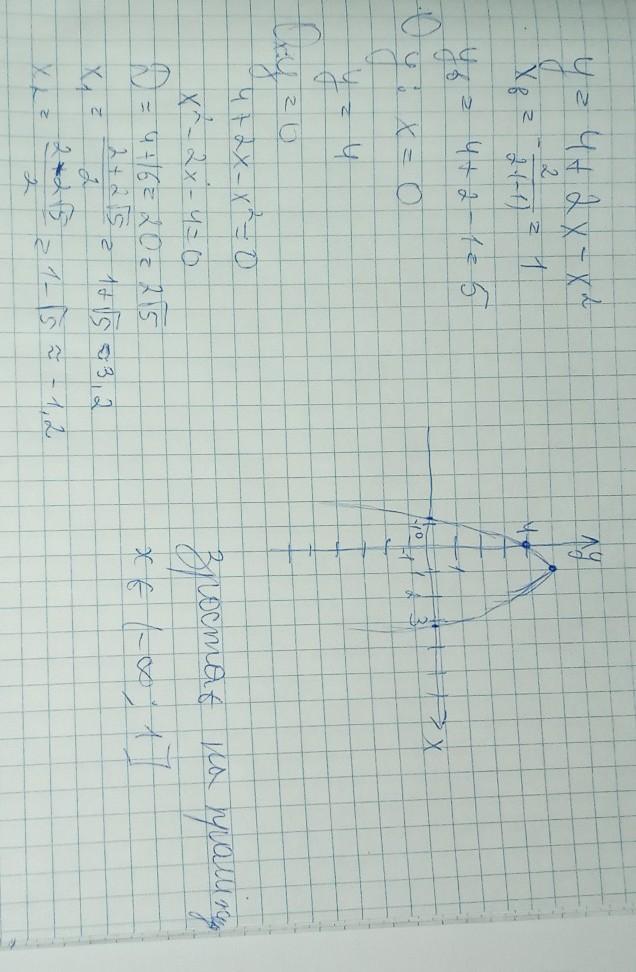 y = 4 + 2x - x²
x_в = -2/2·(-1) = 1
y_в = 4 + 2 - 1 = 5
Oy: x = 0
y = 4
Ox: y = 0
4 + 2x - x² = 0
x² - 2x - 4 = 0
D = 4 + 16 = 20 = 2√5
x₁ = 2 + 2√5/2 = 1 + √5 ≈ 3,2
x₂ = 2 - 2√5/2 = 1 - √5 ≈ -1,2
y
4
1
-1 0 1 2 3
-1
x
Зростає на проміжку
x ∈ (-∞; 1]